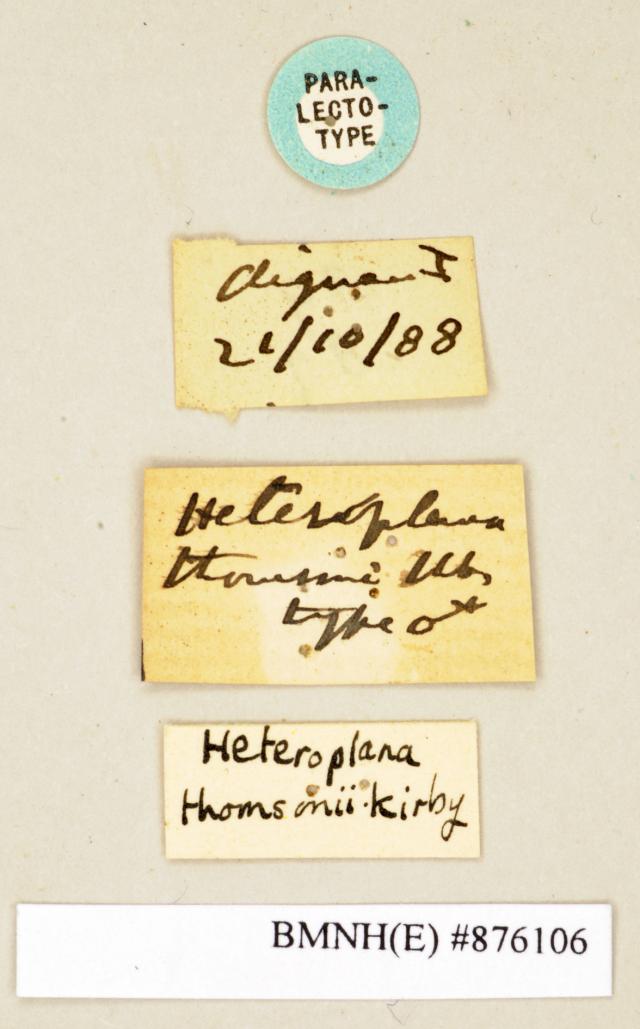 PARA-
LECTO-
TYPE
21/10/88
Heteroplana
type ♂
Heteroplana
thomsonii. Kirby
BMNH(E) #876106